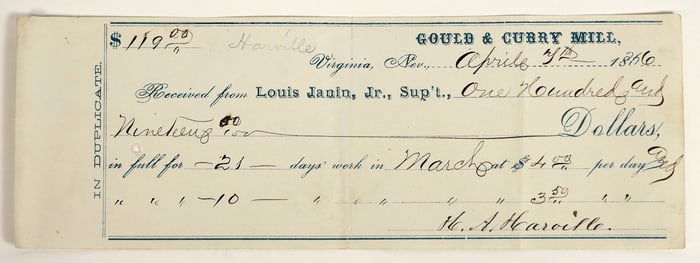 IN DUPLICATE.
$119 00/" Harville GOULD & CURRY MILL,
Virginia, Nev., April 7th 1866
Received from Louis Janin, Jr., Sup't., One Hundred and
Nineteen 00/100 Dollars,
in full for - 21 - days' work in March at $4.00 per day And
" " " - 10 - " " " " " 3.50 " "
H. A. Harville.